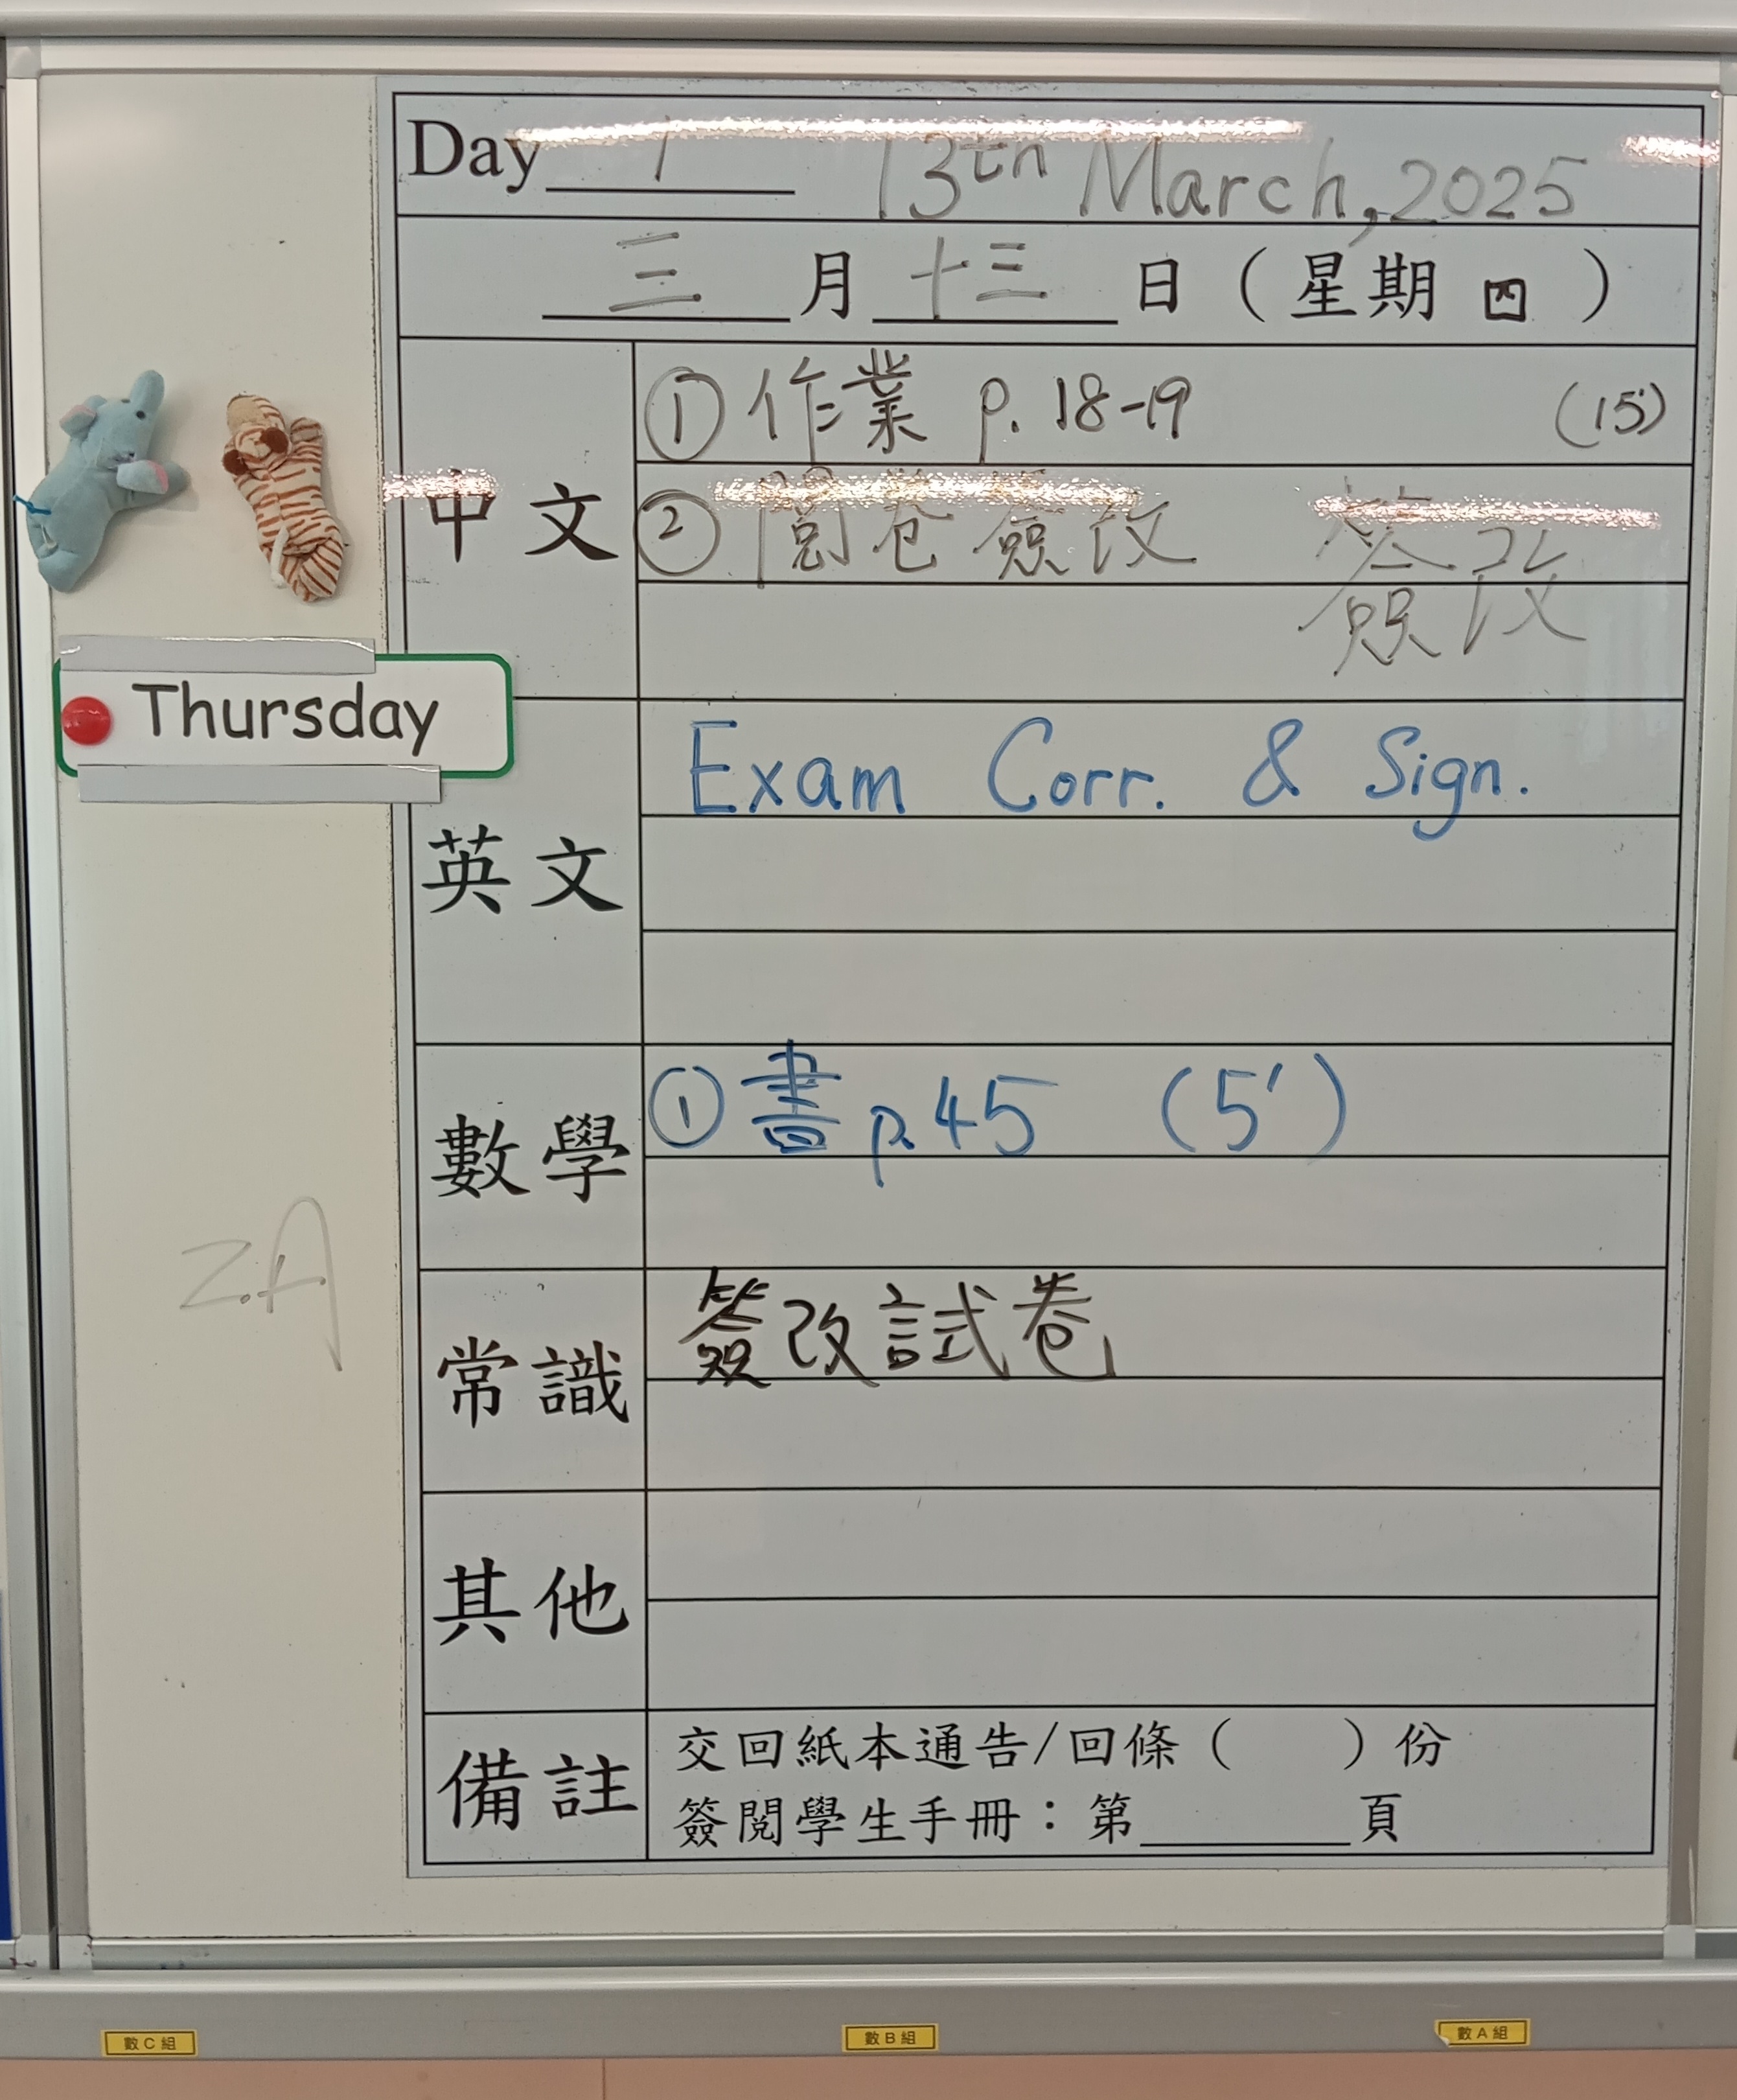 Day 1 13th March, 2025
三 月 十三 日 ( 星期 四 )
中文
① 作業 p. 18-19 (15')
② 閱卷簽改 簽改
Thursday
英文
Exam Corr. & Sign.
數學
① 書 p.45 (5')
2A
常識
簽改試卷
其他
備註
交回紙本通告/回條 ( ) 份
簽閱學生手冊：第______頁
數C組
數B組
數A組